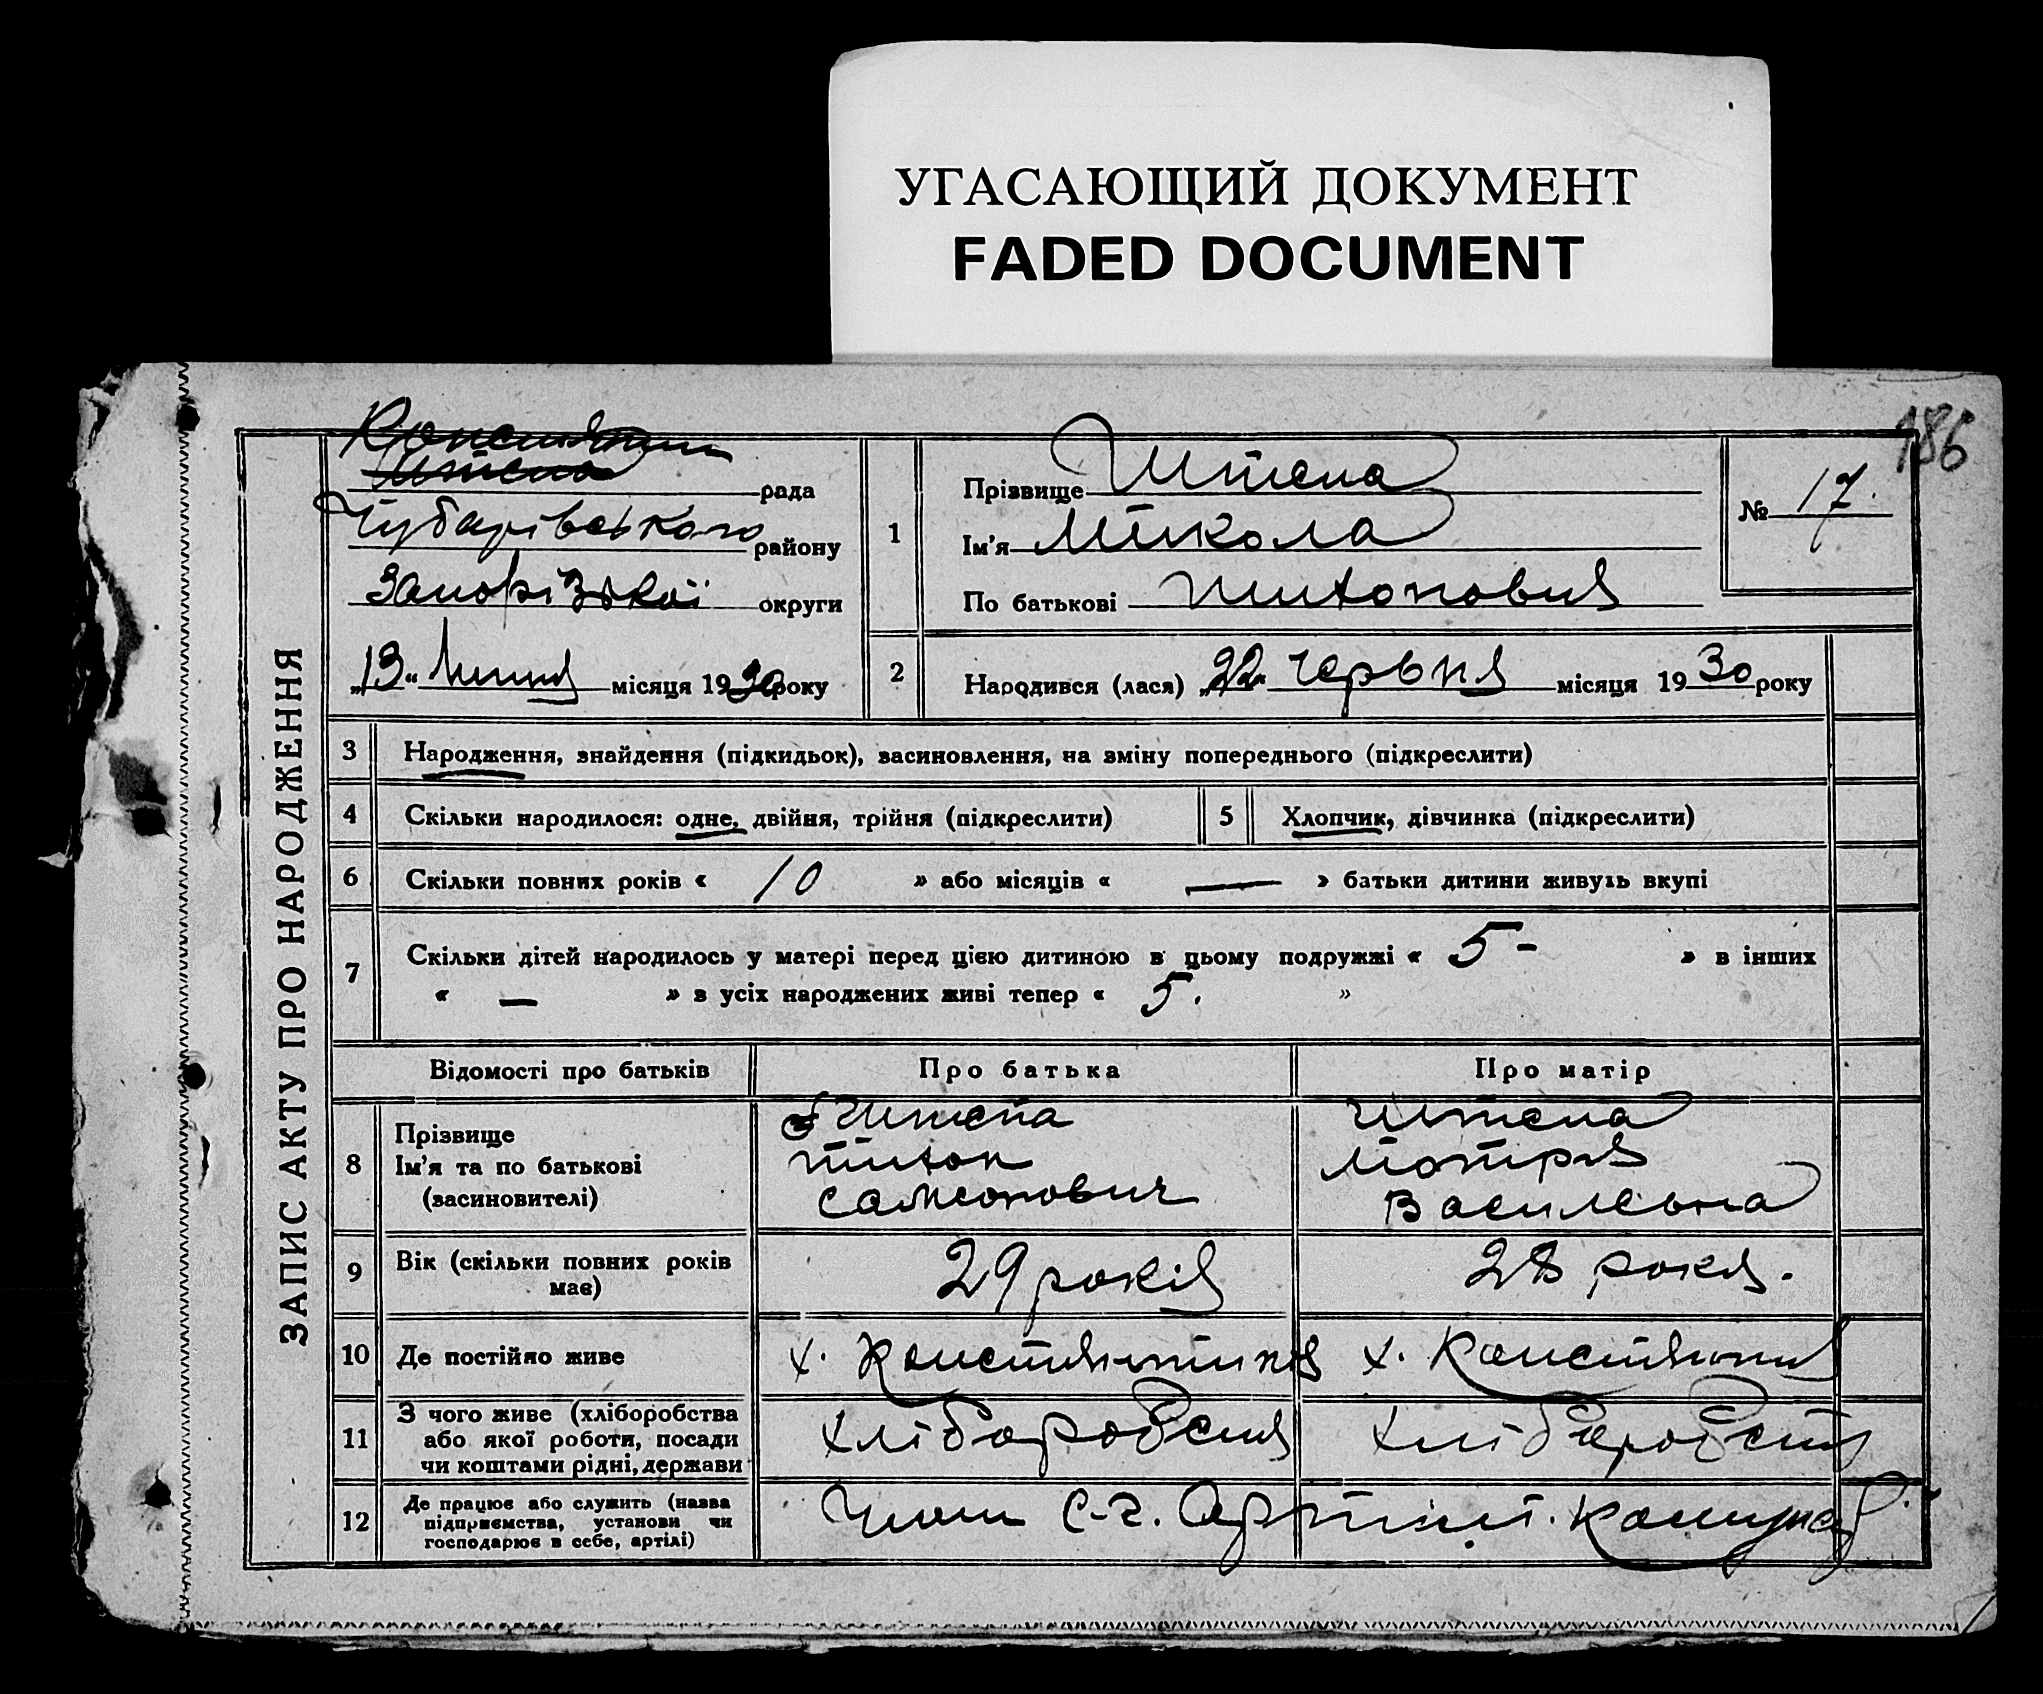 УГАСАЮЩИЙ ДОКУМЕНТ
FADED DOCUMENT
186
ЗАПИС АКТУ ПРО НАРОДЖЕННЯ
Констянтин
Штепа рада
Чубарівського району
Запорізької округи
„13“ липня місяця 1930 року
1
Прізвище Штепа
Ім'я Микола
По батькові Тихонович
№ 17.
2
Народився (лася) „22“ червня місяця 1930 року
3 Народження, знайдення (підкидьок), засиновлення, на зміну попереднього (підкреслити)
4 Скільки народилося: одне, двійня, трійня (підкреслити) 5 Хлопчик, дівчинка (підкреслити)
6 Скільки повних років « 10 » або місяців « — » батьки дитини живуть вкупі
7 Скільки дітей народилось у матері перед цією дитиною в цьому подружжі « 5 - » в інших
« — » з усіх народжених живі тепер « 5. »
Відомості про батьків Про батька Про матір
8 Прізвище Штепа Штепа
Ім'я та по батькові Тихон Мотря
(засиновителі) Самсонович Василевна
9 Вік (скільки повних років має) 29 років 28 років.
10 Де постійно живе х. Констянтинів х. Констянтин
11 З чого живе (хліборобства
або якої роботи, посади
чи коштами рідні, держави хліборобств хліборобств
12 Де працює або служить (назва
підприємства, установи чи
господарює в себе, артілі) Член С-г. Артілі